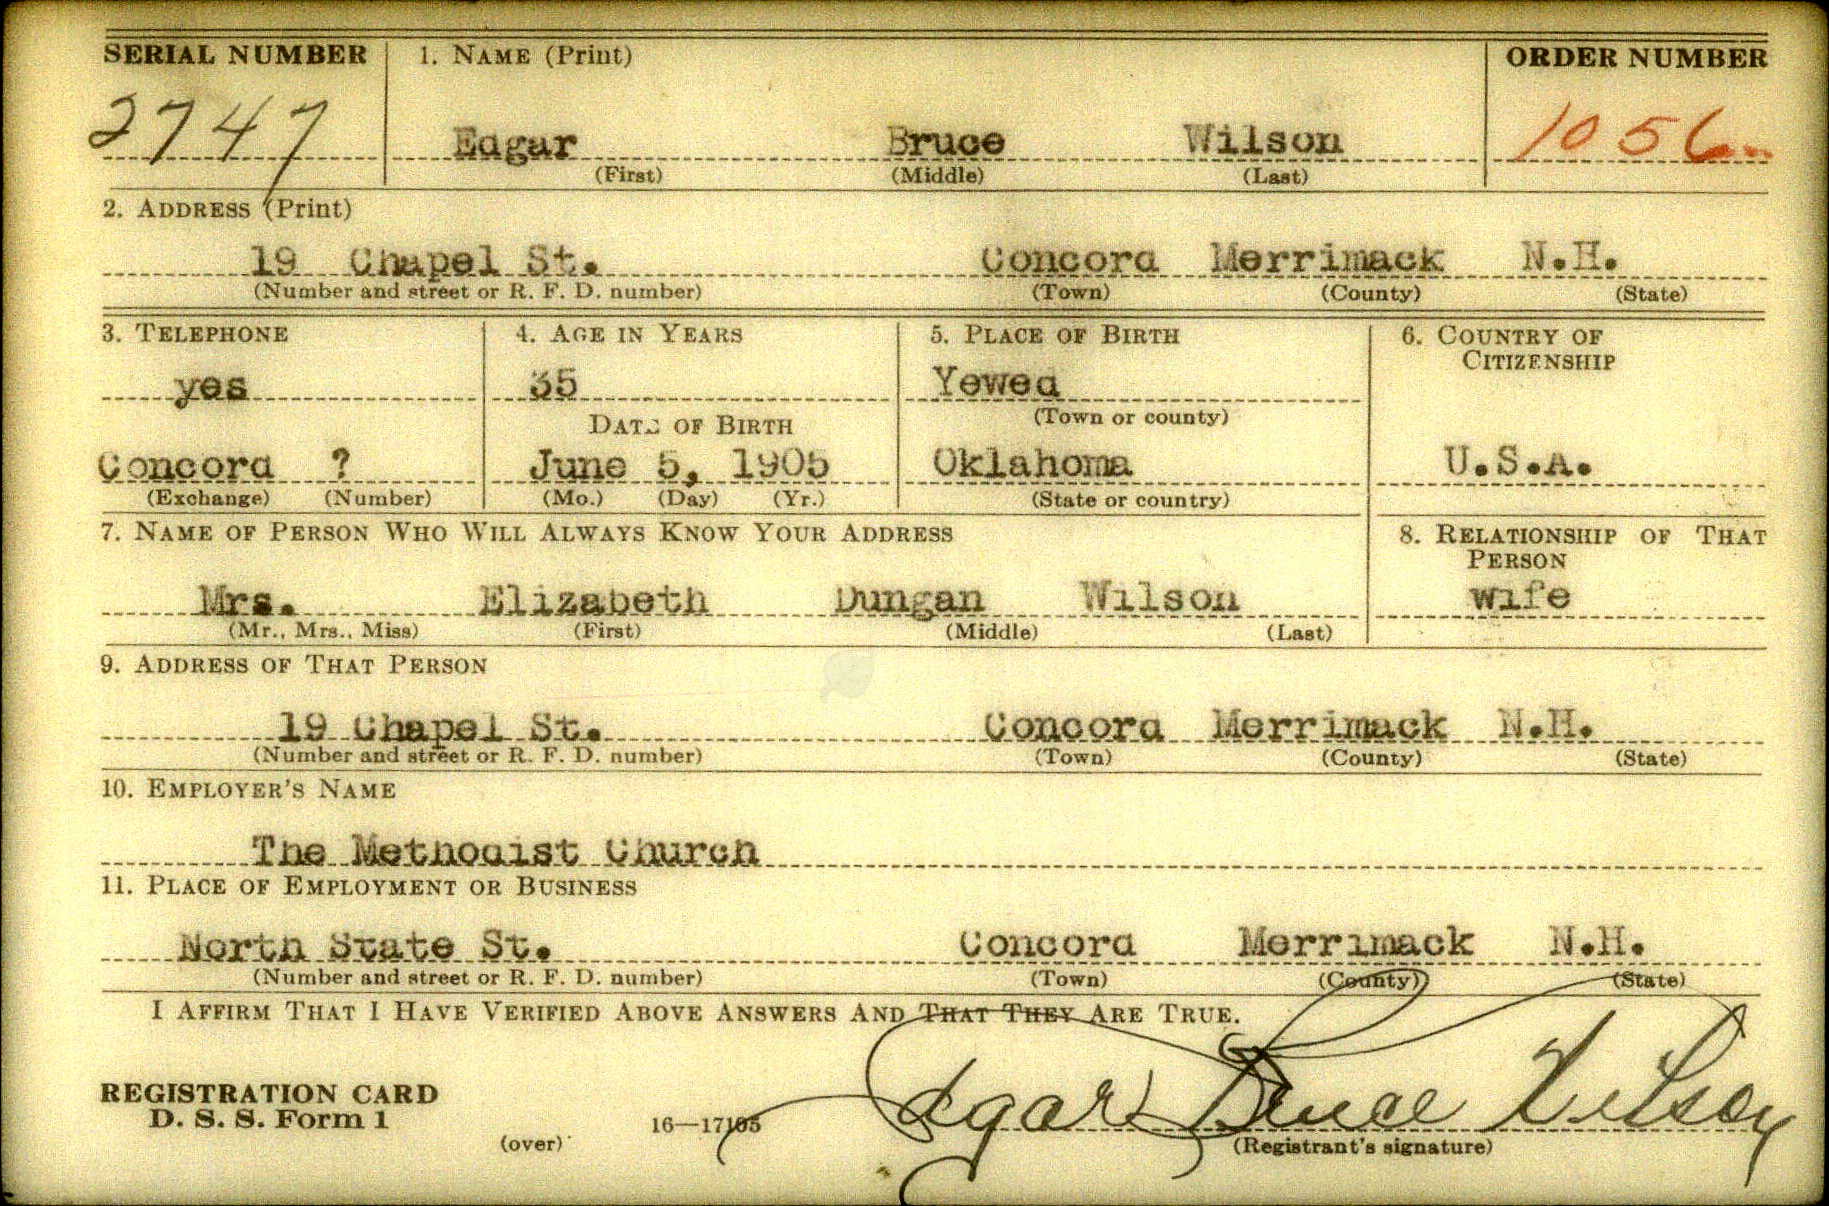 SERIAL NUMBER 1. NAME (Print) ORDER NUMBER
2747 Edgar Bruce Wilson 1056
(First) (Middle) (Last)
2. ADDRESS (Print)
19 Chapel St. Concord Merrimack N.H.
(Number and street or R. F. D. number) (Town) (County) (State)
3. TELEPHONE 4. AGE IN YEARS 5. PLACE OF BIRTH 6. COUNTRY OF
CITIZENSHIP
yes 35 Yewed
DATE OF BIRTH (Town or county)
Concord ? June 5, 1905 Oklahoma U.S.A.
(Exchange) (Number) (Mo.) (Day) (Yr.) (State or country)
7. NAME OF PERSON WHO WILL ALWAYS KNOW YOUR ADDRESS 8. RELATIONSHIP OF THAT
PERSON
Mrs. Elizabeth Dungan Wilson wife
(Mr., Mrs., Miss) (First) (Middle) (Last)
9. ADDRESS OF THAT PERSON
19 Chapel St. Concord Merrimack N.H.
(Number and street or R. F. D. number) (Town) (County) (State)
10. EMPLOYER'S NAME
The Methodist Church
11. PLACE OF EMPLOYMENT OR BUSINESS
North State St. Concord Merrimack N.H.
(Number and street or R. F. D. number) (Town) (County) (State)
I AFFIRM THAT I HAVE VERIFIED ABOVE ANSWERS AND THAT THEY ARE TRUE.
REGISTRATION CARD
D. S. S. Form 1 16—17105 Edgar Bruce Wilson
(over) (Registrant's signature)